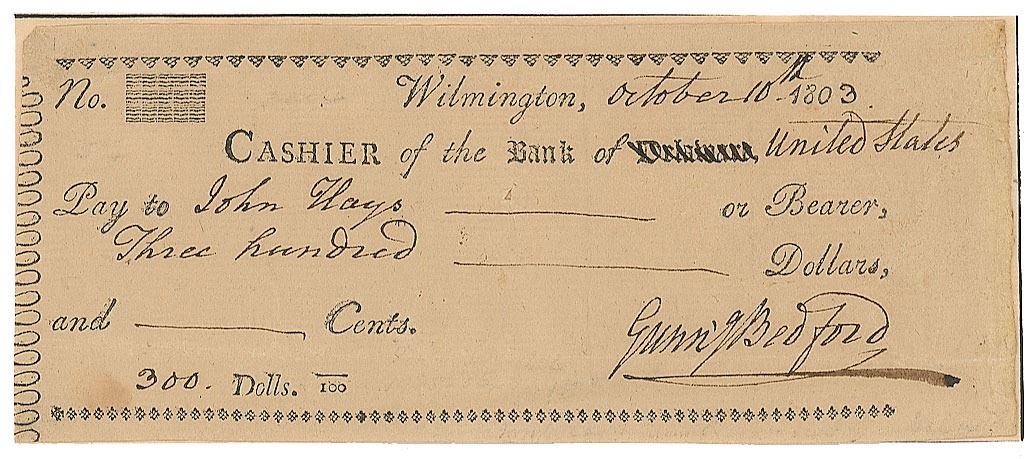 No. Wilmington, October 10th 1803.
CASHIER of the Bank of United States
Pay to John Hays or Bearer,
Three hundred Dollars,
and Cents.
Gunng Bedford
300. Dolls. 100